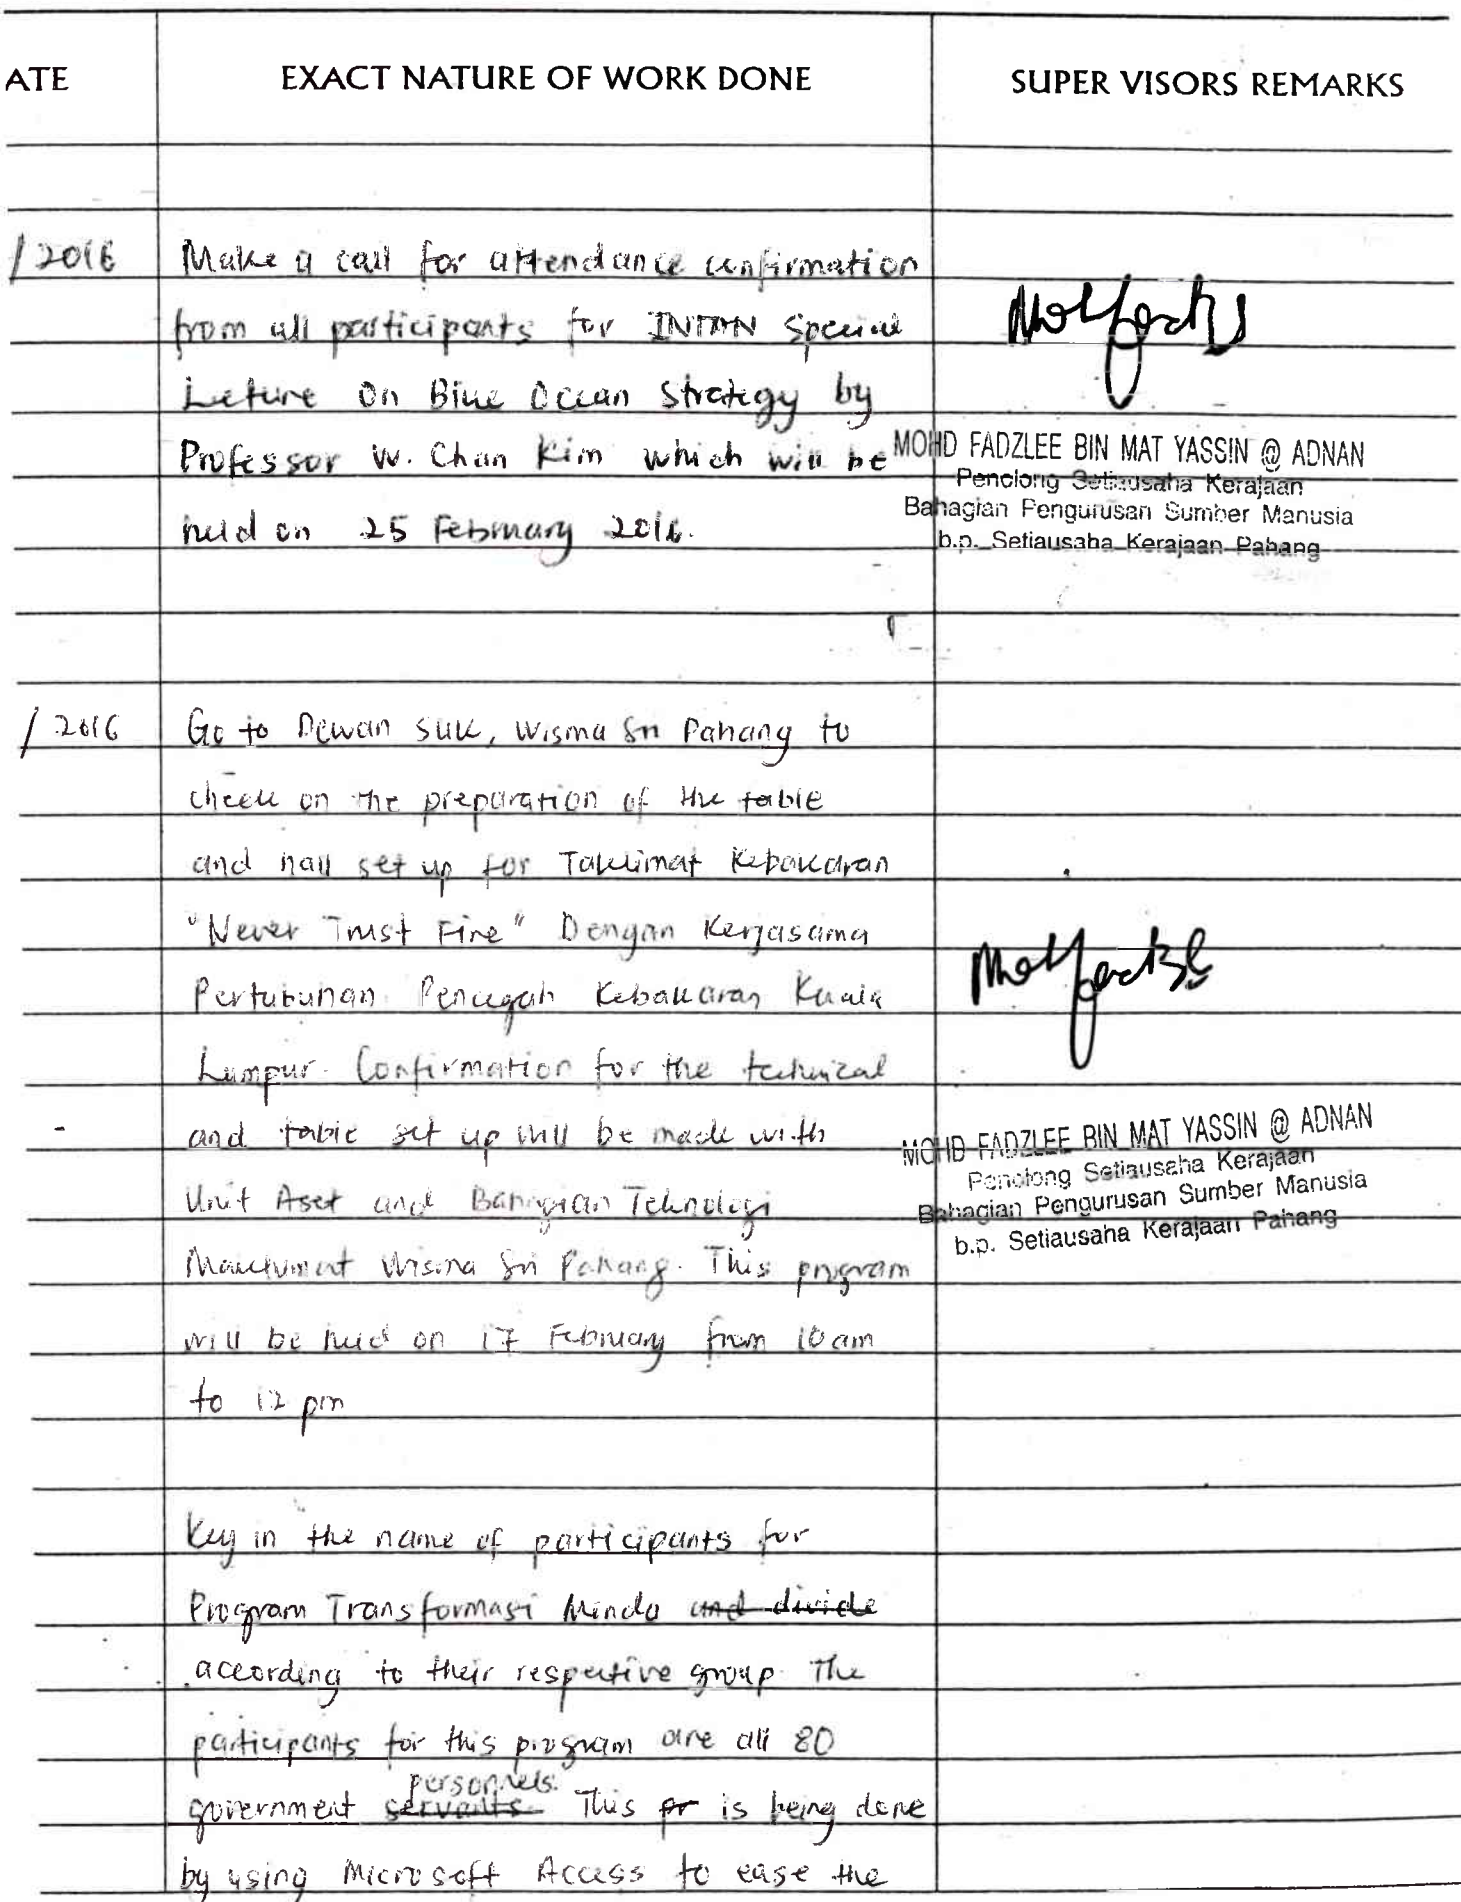 ATE EXACT NATURE OF WORK DONE SUPER VISORS REMARKS
/2016 Make a call for attendance confirmation
from all participants for INTAN Special
Leture On Blue Ocean Strategy by
Professor W. Chan Kim which will be
held on 25 February 2016.
MOHD FADZLEE BIN MAT YASSIN @ ADNAN
Penolong Setiausaha Kerajaan
Bahagian Pengurusan Sumber Manusia
b.p. Setiausaha Kerajaan Pahang
/2016 Go to Dewan SUK, Wisma Sri Pahang to
check on the preparation of the table
and hall set up for Taklimat Kebakaran
"Never Trust Fire" Dengan Kerjasama
Pertubuhan Pencegah Kebakaran Kuala
Lumpur. Confirmation for the technical
and table set up will be made with
Unit Aset and Bahagian Teknologi
Maklumat Wisma Sri Pahang. This program
will be held on 17 February from 10 am
to 12 pm
MOHD FADZLEE BIN MAT YASSIN @ ADNAN
Penolong Setiausaha Kerajaan
Bahagian Pengurusan Sumber Manusia
b.p. Setiausaha Kerajaan Pahang
Key in the name of participants for
Program Transformasi Minda and divide
according to their respective group. The
participants for this program are all 80
personnels.
government servants This pr is being done
by using Microsoft Access to ease the